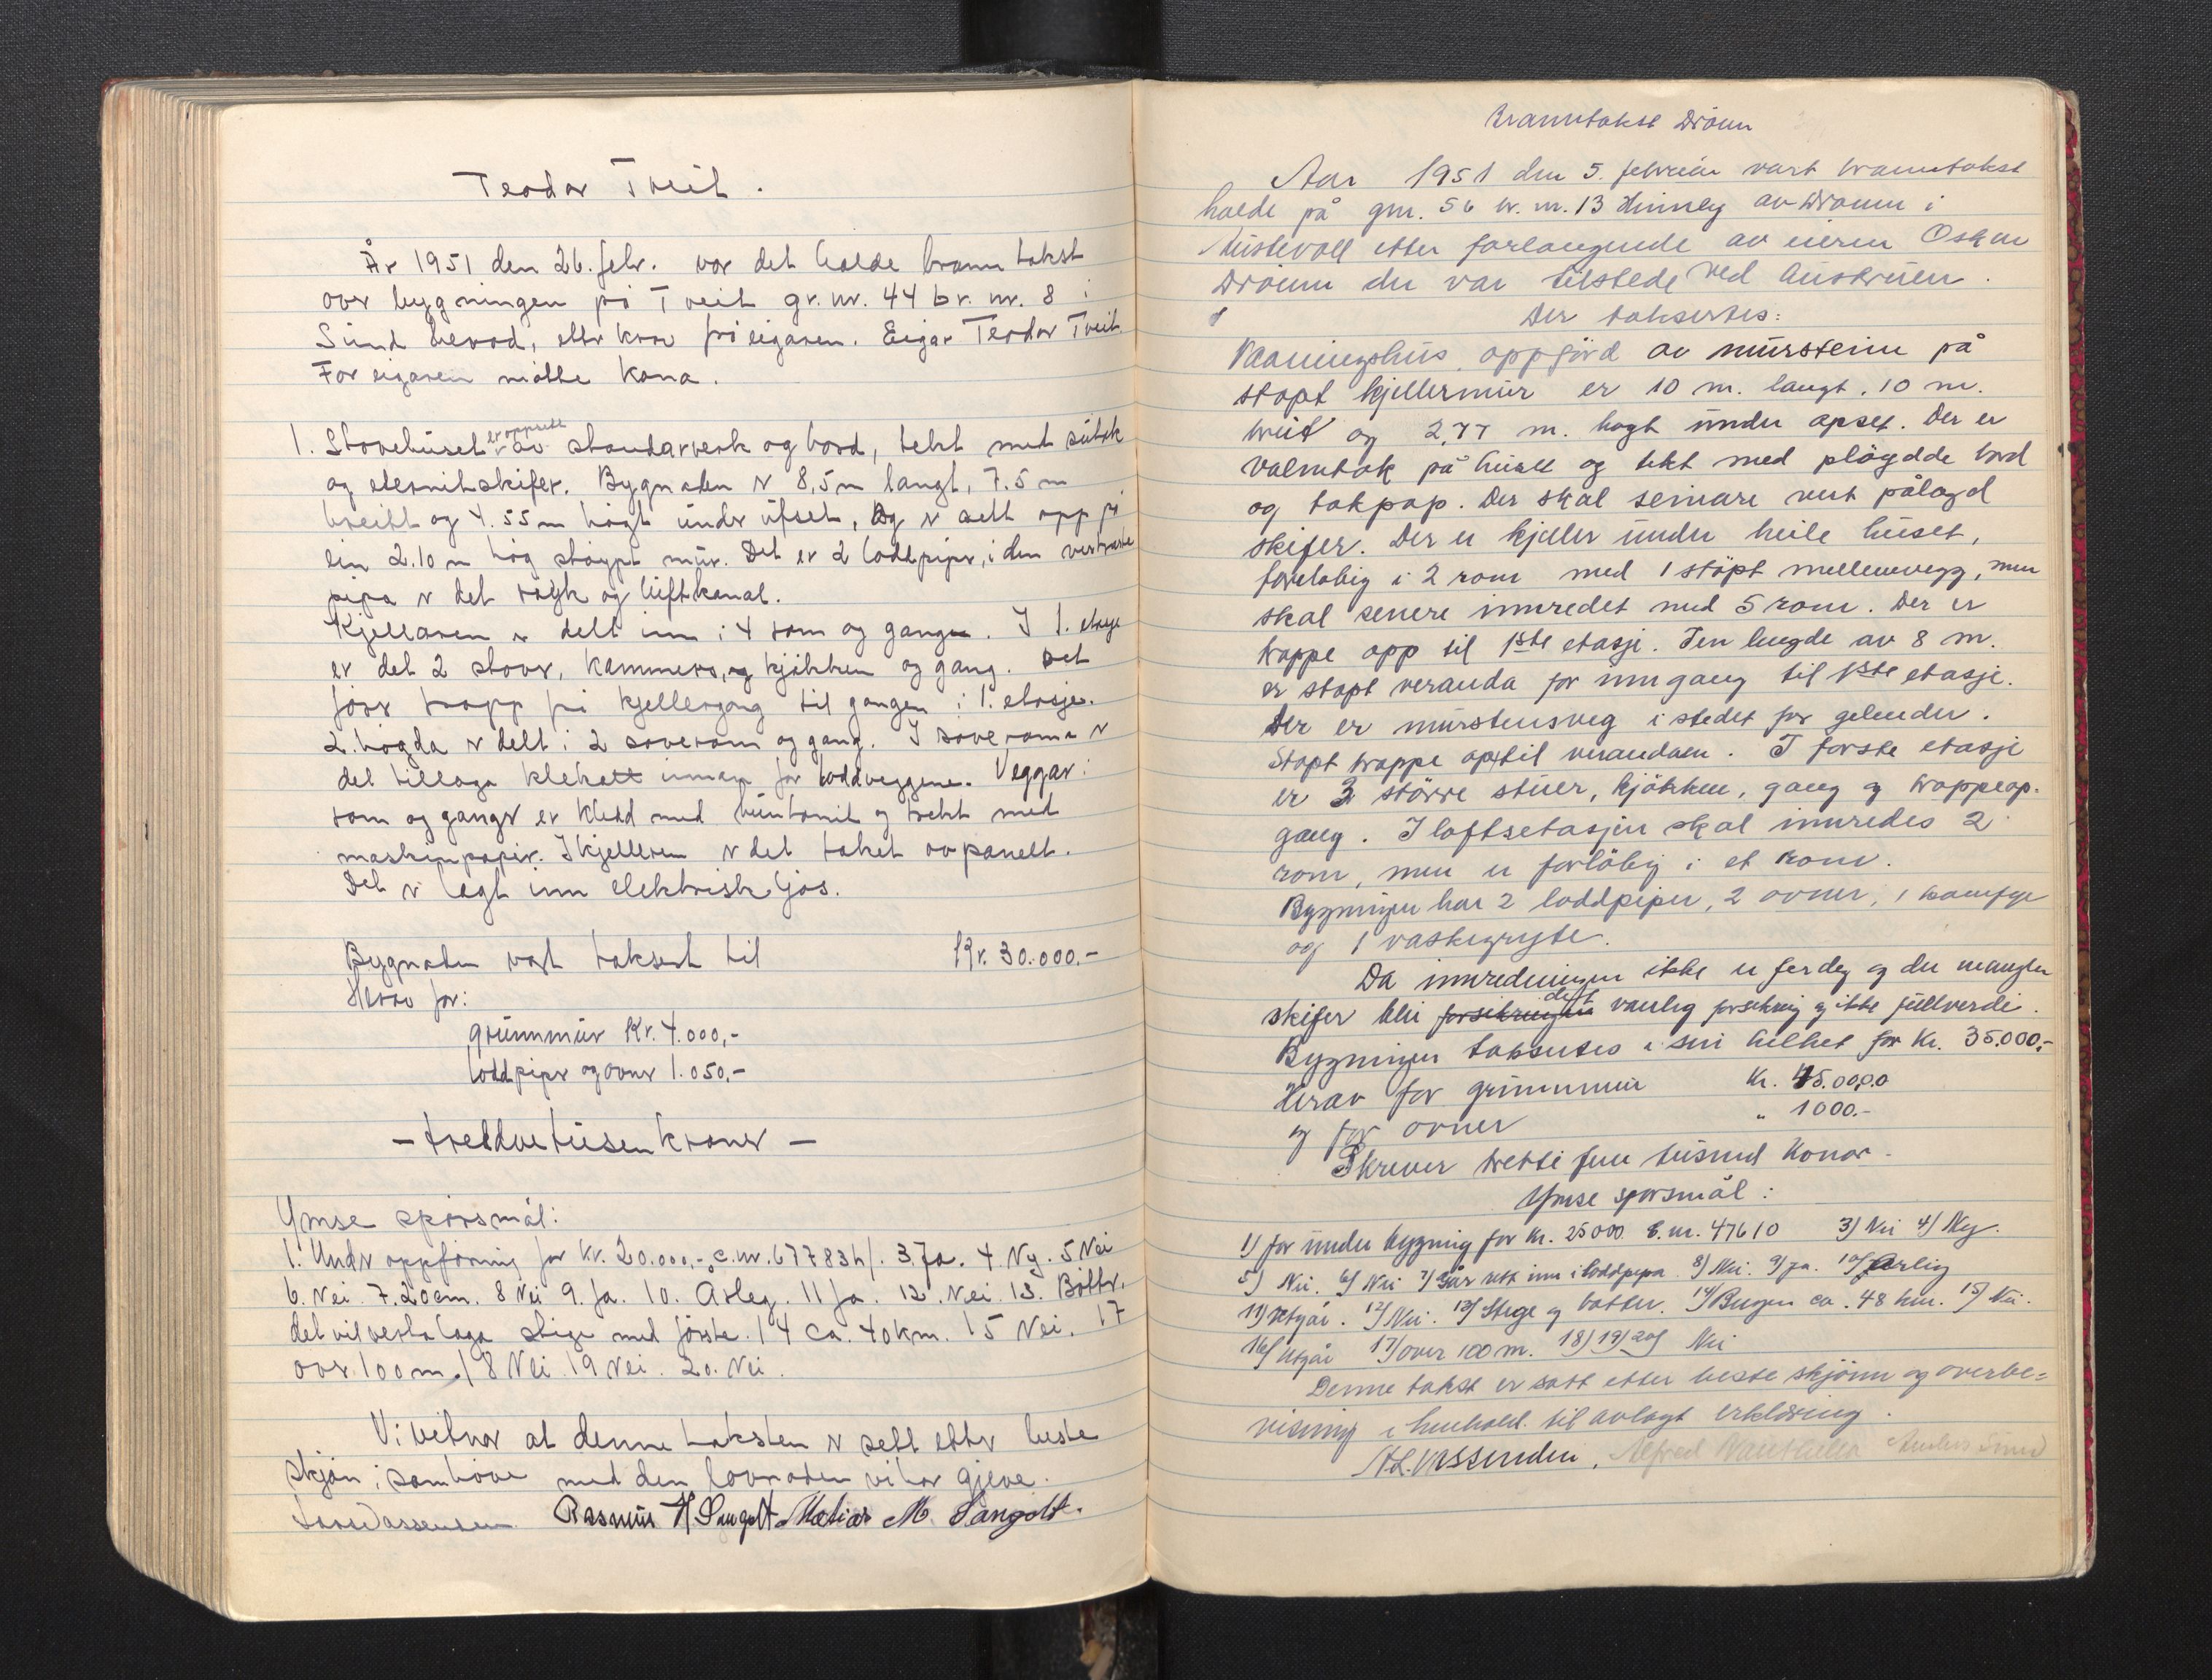 Teodor Tveit.
År 1951 den 26. febr. var det halde branntakst
over bygningen på Tveit gr. nr. 44 br. nr. 8 i
Sund herad, etter krav frå eigaren. Eigar Teodor Tveit.
For eigaren møtte kona.
1. Stovehuset er oppsett av standarverk og bord, tekt med sutak
og eternitskifer. Bygnaden er 8,5 m langt, 7.5 m
breitt og 4.55 m högt under ufset, og er sett opp på
ein 2.10 m hög stöypt mur. Det er 2 loddpiper, i den vestraste
pipa er det röyk og luftkanal.
Kjellaren er delt inn i 4 rom og gange. I 1. etasje
er det 2 stover, kammers, og kjökken og gang. Det
förer trapp frå kjellergang til gangen i 1. etasje.
2. högda er delt i 2 soverom og gang. I soveroma er
det tillaga klekott innan for loddveggene. Veggar i
rom og ganger er kledd med huntonit og trekt med
maskinpapir. I kjelleren er det taket av panelt.
Det er lagt inn elektrisk ljos.
Bygnaden vart taksert til Kr. 30.000.-
Herav for:
grunnmur Kr. 4.000,-
loddpiper og ovner 1.050,-
- trettitusen kroner -
Ymse spörsmål:
1. Under oppföring for kr. 20.000,- c. nr. 677834/. 3. Ja. 4. Ny. 5 Nei
6. Nei. 7. 20 cm. 8 Nei 9. Ja. 10. Årleg. 11 Ja. 12. Nei. 13. Bötter,
det vil verta laga stige med förste. 14 ca. 40 km. 15 Nei. 17
over 100 m. 18 Nei 19 Nei. 20. Nei.
Vi vitnar at denne taksten er sett etter beste
skjön i samhöve med den lovnaden vi har gjeve.
Lars Vassenden Rasmus H Sangolt Matias M. Sangolt.
Branntakst Drönen
Aar 1951 den 5. februar vart branntakst
halde på gnr. 56 br. nr. 13 av Drönen i
Austevoll etter forlangende av eieren Oskar
Drönen der var tilstede ved Auskruen.
Der taksertes:
Vaaningshus oppförd av murstein på
stöpt kjellermur er 10 m. langt, 10 m.
breit og 2,77 m. högt under opset. Der er
valmtak på huset og tekt med plöydde bord
og takpap. Der skal seinare vert pålagd
skifer. Der er kjeller under heile huset,
forelöbig i 2 rom med 1 stöpt mellemvegg, men
skal senere innredet med 5 rom. Der er
trappe opp til 1ste etasje. I en lengde av 8 m.
er stöpt veranda for inngang til 1ste etasje.
Der er murstensveg i stedet for gelender.
Stöpt trappe optil verandaen. I förste etasje
er 3 större stuer, kjökken, gang og trappeop-
gang. I loftsetasjen skal innredes 2
rom, men er forlöbig i et rom.
Bygningen har 2 loddpiper, 2 ovner, 1 komfyr
og 1 vaskegryte.
Da innredningen ikke er ferdig og der mangler
skifer bli det vanlig forsikring og ikke fullverdi.
Bygningen takseres i sin helhet for Kr. 35.000,-
Herav for grunnmur Kr. 45.00,0.0
og for ovner " 1000.-
Skriver tretti fem tusend Kronor.
Ymse spörsmål:
1) for under bygning for Kr. 25000. C. nr. 47610 3) Nei 4) Ny.
5) Nei. 6) Nei 7) Går rett inn i loddpipa. 8) Nei. 9) Ja. 10) Årlig
11) Utgår. 12) Nei. 13) Stege og bötter. 14) Bergen ca. 48 km. 15) Nei.
16) Utgår 17) over 100 m. 18) 19) 20) Nei
Denne takst er satt etter beste skjönn og overbe=
visning i henhold til avlagt erklæring.
N.L. Vassenden, Alfred